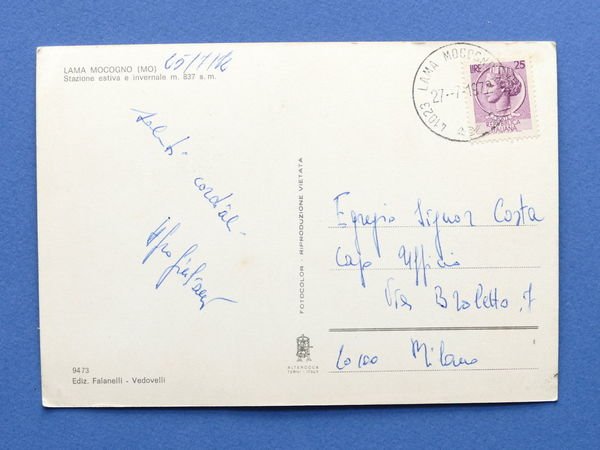 LAMA MOCOGNO (MO)
Stazione estiva e invernale m. 837 s. m.
saluti cordiali
FOTOCOLOR - RIPRODUZIONE VIETATA
41023 LAMA MOCOGNO
27-7-197
LIRE 25
REPUBBLICA
ITALIANA
Egregio Signor Costa
Capo Ufficio
Via Broletto, 7
20100 Milano
ALTEROCCA
TERNI - ITALY
9473
Ediz. Falanelli - Vedovelli